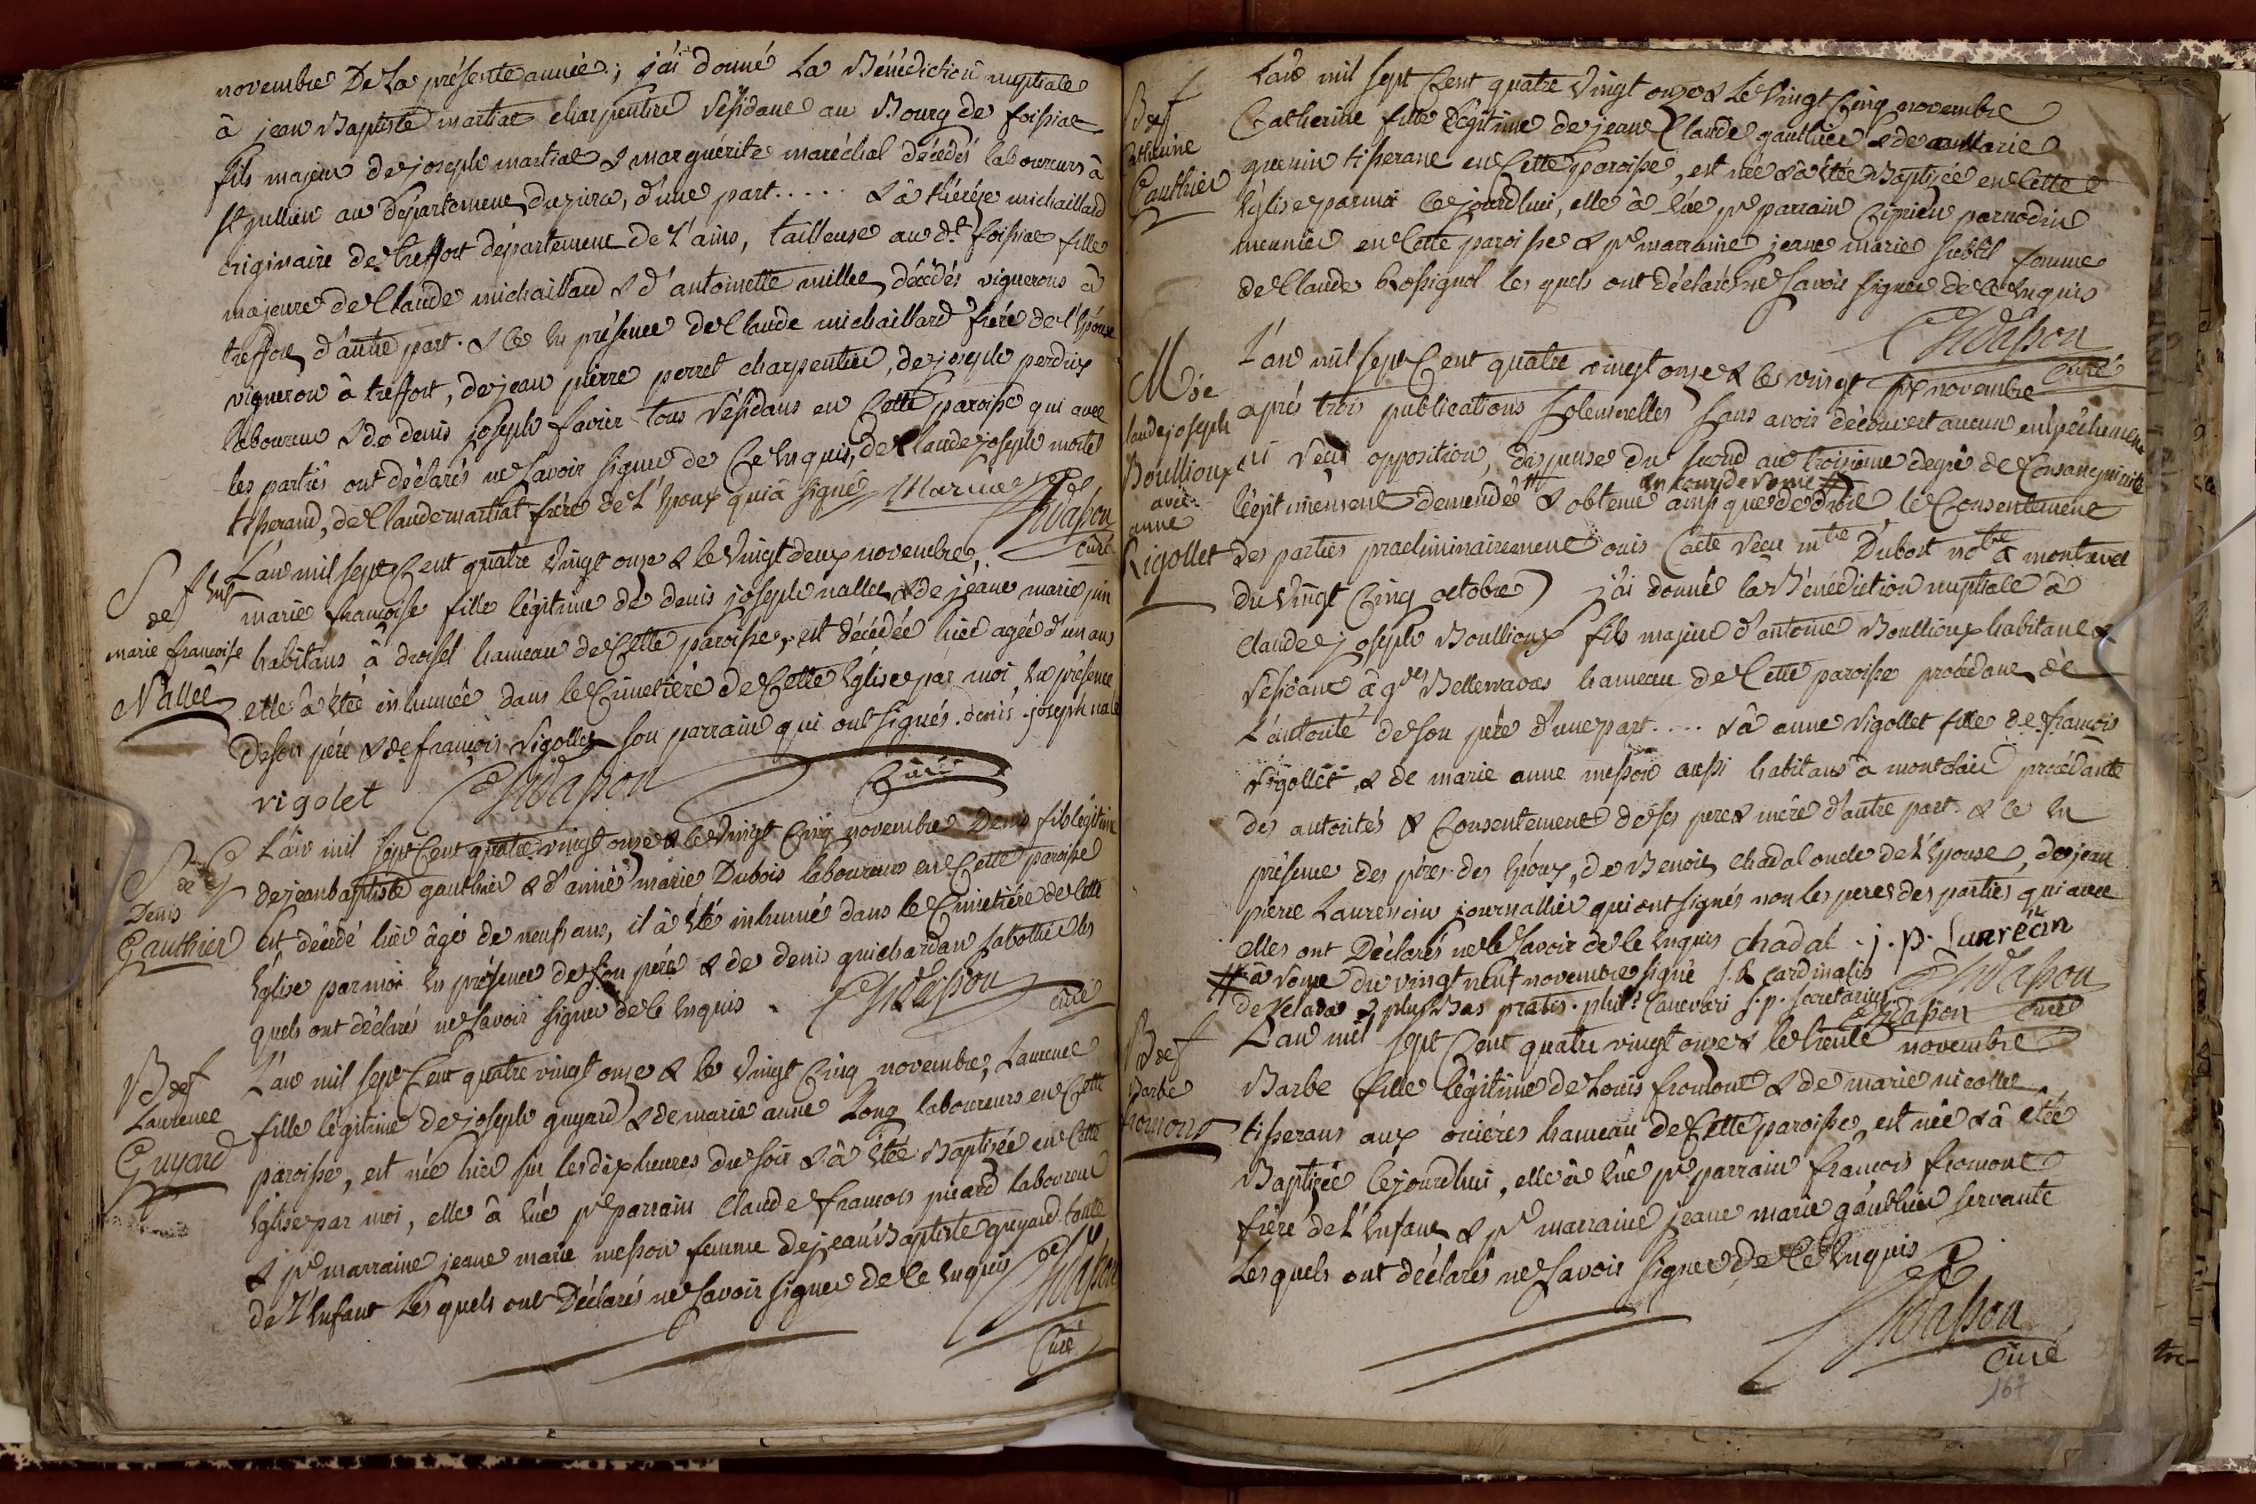 novembre De La présente année ; j'ai donné La Bénédiction nuptiale
à jean Baptiste martiat charpentier résidant au Bourg de foissiat
fils majeur de joseph martiat & marguérite maréchal décédés laboureurs à
st jullien au département du jura, d'une part ..... & à thérèze michaillard
originaire de treffort département de l'ains, tailleuse au dt foissiat fille
majeure de Claude michaillard & d'antoinette millet décédés vignerons à
treffort d'autre part. & ce En présence de Claude michaillard frère de l'Epouse
vigneron à treffort, de jean pierre perret charpentier, de joseph perdrix
laboureur & de denis joseph favier tous résidans en Cette paroisse qui avec
les parties ont déclarés ne Savoir signer de Ce Enquis, de Claude joseph mortel
tisserand, de Claude martiat frère de L'Epoux qui a signé Martiat
Chdasson
Curé
S def Enft
marie françoise
Nallet
L'an mil sept Cent quatre Vingt onze & le Vingt deux novembre,
marie françoise fille légitime de denis joseph nallet & de jeane marie pin
habitans à droisel hameau de Cette paroisse, est décédée hier agée d'un ans
elle à Eté inhumée dans le Cimetière de Cette Eglise par moi En présence
de son père & de françois Rigollet son parrain qui ont signés. denis joseph nalet
rigolet Chdasson Curé
Denis
Gauthier
L'an mil sept Cent quatre vingt onze & le Vingt Cinq novembre Denis fils légitime
de jean baptiste gauthier & d'anne marie Dubois laboureurs en Cette paroisse
est décédé hier âgé de neuf ans, il à Eté inhumé dans le Cimetière de Cette
Eglise par moi En présence de son père & de denis guichardan sabottier les
quels ont déclarés ne Savoir signer de Ce Enquis. Chdasson Curé
B def
Laurence
Guyard
L'an mil sept Cent quatre vingt onze & le Vingt Cinq novembre, Laurence
fille légitime de joseph guyard & de marie anne Long laboureurs en Cette
paroisse, est née hier sur les dix heures du soir & à Eté Baptisée en Cette
Eglise par moi, elle à Eüe pr parrain Claude françois picard laboureur
& pr marraine jeane marie messon femme de jean Baptiste guyard tante
de L'Enfant Les quels ont Déclarés ne Savoir signer de Ce Enquis Chdasson
Curé
B def
Catherine
Gauthier
L'an mil sept Cent quatre Vingt onze & Le Vingt Cinq novembre
Catherine fille Légitime de jean Claude gauthier & de marie
guenin tisserans en Cette paroisse, est née & à Etée Baptisée en Cette
Eglise par moi Cejourdhui, elle à Eüe pr parrain Ciprien parnodin
meunier en Cette paroisse & pr marraine jeane marie femme
de Claude Rossignol les quels ont déclaré ne Savoir signer de Ce Enquis
Chdasson
Curé
Claude joseph
Boullioux
avec
anne
Rigollet
L'an mil sept Cent quatre vingt onze & le vingt six novembre
aprés trois publications solennelles sans avoir découvert aucun empêchement
ni reçu opposition, dispense du second au troisieme degré de Consanguinité
légitimement demandée & obtenue # en cour de rome # ainsi que de droit le Consentement
des parties praeliminairement ouis (acte reçu mtre Dubost notre à montrevel
du Vingt Cinq octobre) j'ai donné la Bénédiction nuptiale à
Claude joseph Boullioux fils majeur d'antoine Boullioux habitant &
résidant à gdes Bellevavres hameau de Cette paroisse procédant de
L'autorité de son père d'une part .... & à anne Rigollet fille de françois
Rigollet & de marie anne messon aussi habitans à montclair procédante
des autorités & Consentement de ses pere & mère d'autre part. & ce En
présence des pères des Epoux, de Benoit chadal oncle de L'Epouse, de jean
pierre Laurencin journallier qui ont signés non les peres des parties qui avec
elles ont Déclarés ne le Savoir de Ce Enquis chadal . j. p. Lanrein
# à rome du vingt neuf novembre signé j. B. cardinalis Chdasson
de Zelada & plus Bas gratis. phil: Canevari s. p. secretarius Chdasson Curé
B def
Barbe
fromont
L'an mil sept Cent quatre vingt onze & le trente novembre
Barbe fille légitime de Louis fromont & de marie nicollet
tisserans aux oncières hameau de Cette paroisse, est née & à Etée
Baptisée Cejourdhui, elle à Eüe pr parrain françois fromont
frère de L'Enfant & pr marraine jeane marie gauthier servante
Les quels ont déclarés ne Savoir signer de Ce Enquis
Chdasson
Curé
167